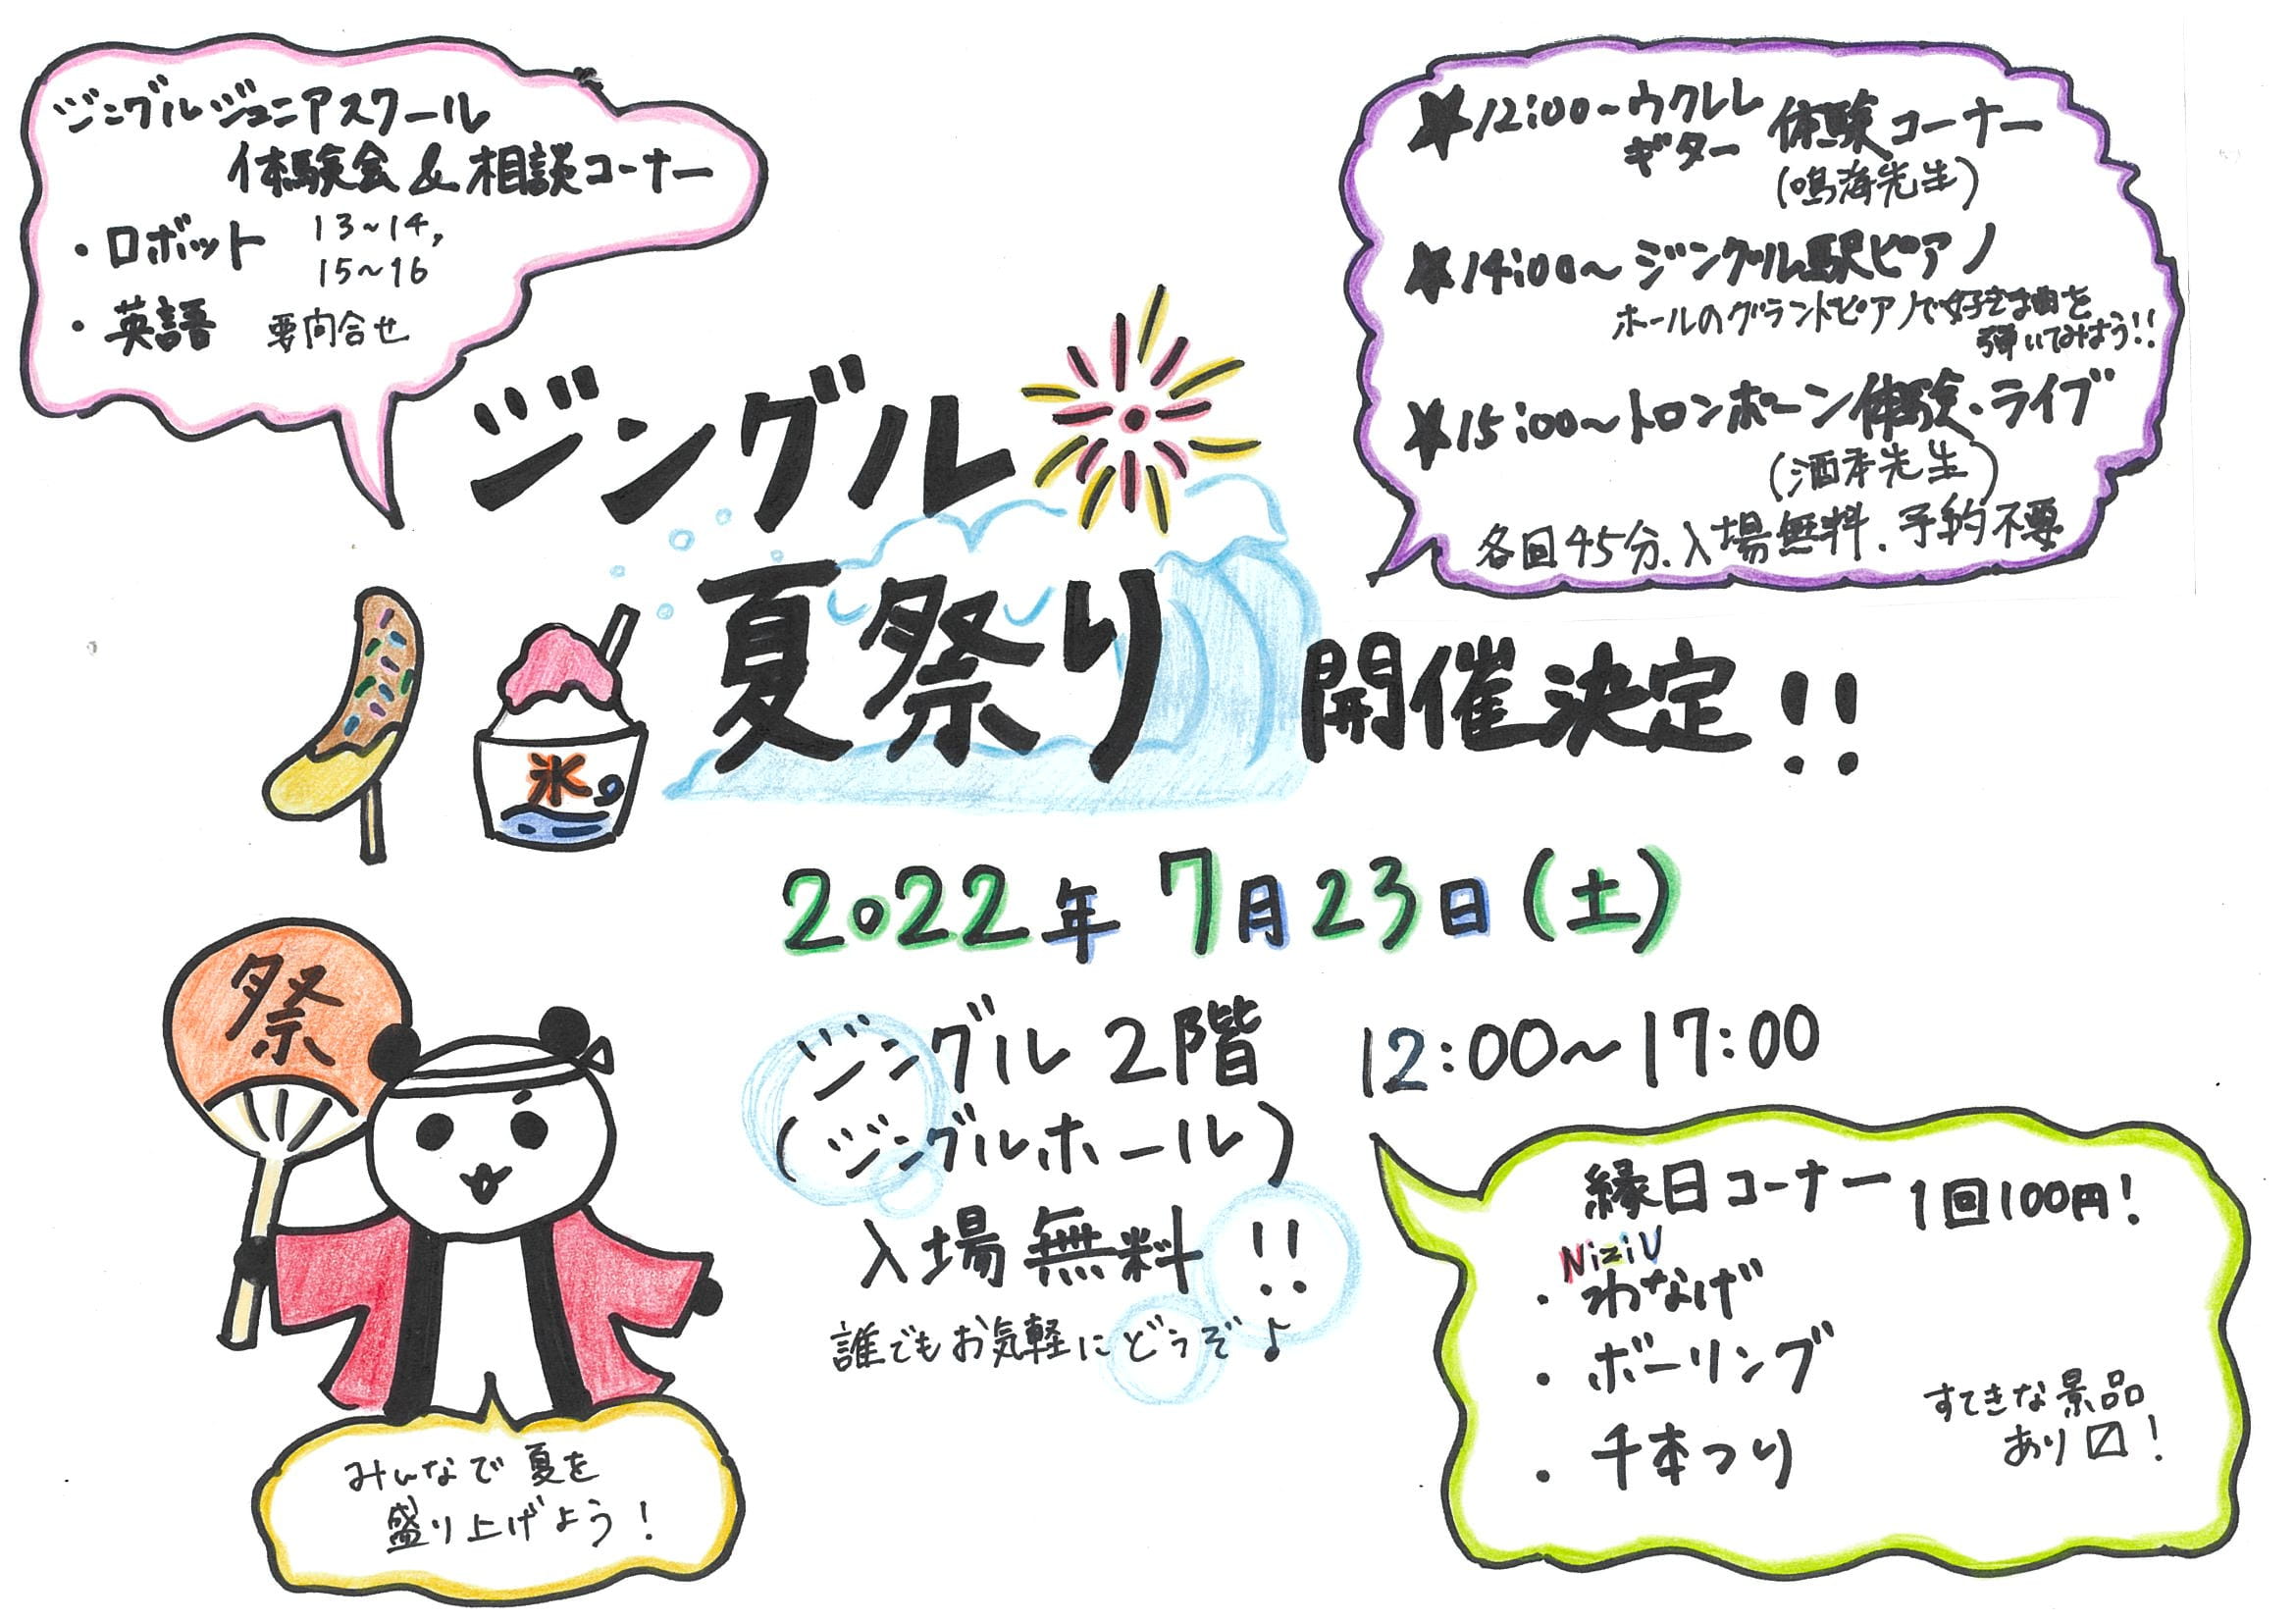 ジングルジュニアスクール
体験会&相談コーナー
・ロボット 13~14,
15~16
・英語 要問合せ
★12:00~ウクレレ
ギター 体験コーナー
(鳴海先生)
★14:00~ジングル駅ピアノ
ホールのグランドピアノで好きな曲を
弾いてみよう!!
★15:00~トロンボーン体験・ライブ
(酒本先生)
各回45分、入場無料、予約不要
ジングル
夏祭り 開催決定!!
氷
2022年 7月23日(土)
ジングル 2階 12:00~17:00
(ジングルホール)
入場無料!!
誰でもお気軽にどうぞ♪
祭
みんなで夏を
盛り上げよう!
縁日コーナー 1回100円!
NiziU
・わなげ
・ボーリング
・千本つり
すてきな景品
あり〼!